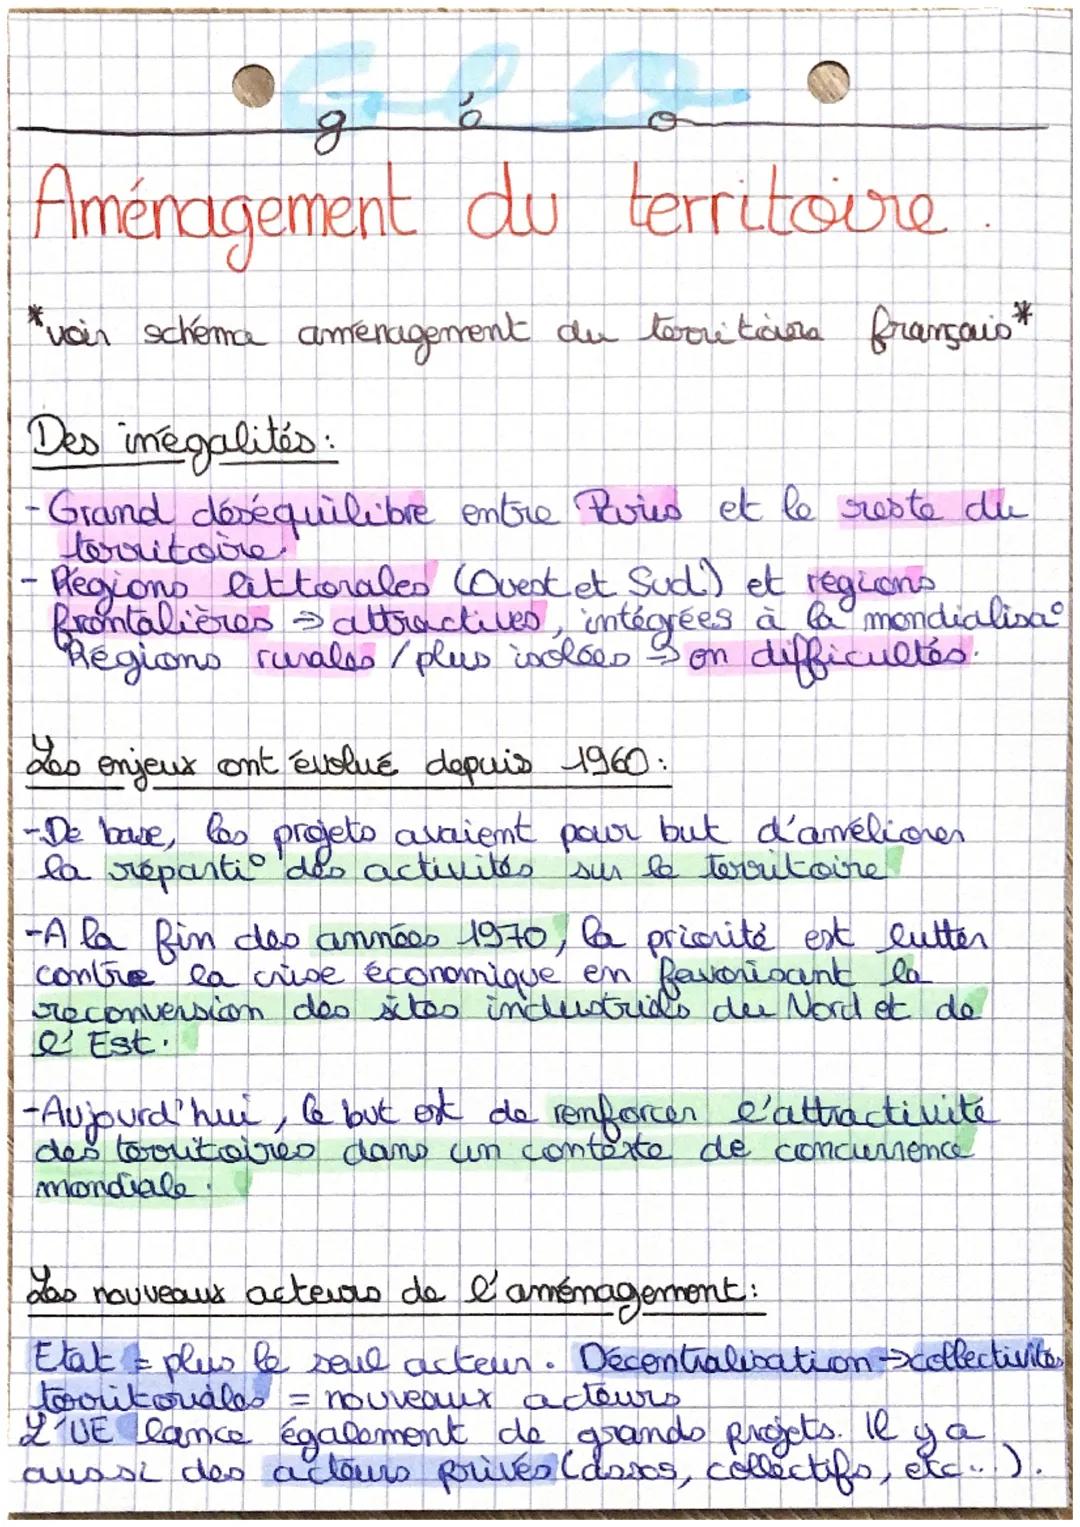 Géo
géo
Aménagement du territoire.
*voir schéma aménagement du territoire français*
Des inégalités:
-Grand déséquilibre entre Paris et le reste du
territoire.
- Régions littorales (Ouest et Sud) et régions
frontalières → attractives, intégrées à la mondialisa°
Régions rurales / plus isolées → en difficultés.
Les enjeux ont évolué depuis 1960:
-De base, les projets avaient pour but d'améliorer
la réparti° des activités sur le territoire
-A la fin des années 1970, la priorité est lutter
contre la crise économique en favorisant la
reconversion des sites industriels du Nord et de
l'Est.
-Aujourd'hui, le but est de renforcer l'attractivité
des territoires dans un contexte de concurrence
mondiale.
Les nouveaux acteurs de l'aménagement:
Etat = plus le seul acteur. Décentralisation → collectivités
territoriales = nouveaux acteurs
L'UE lance également de grands projets. Il y a
aussi des acteurs privés (assos, collectifs, etc...).